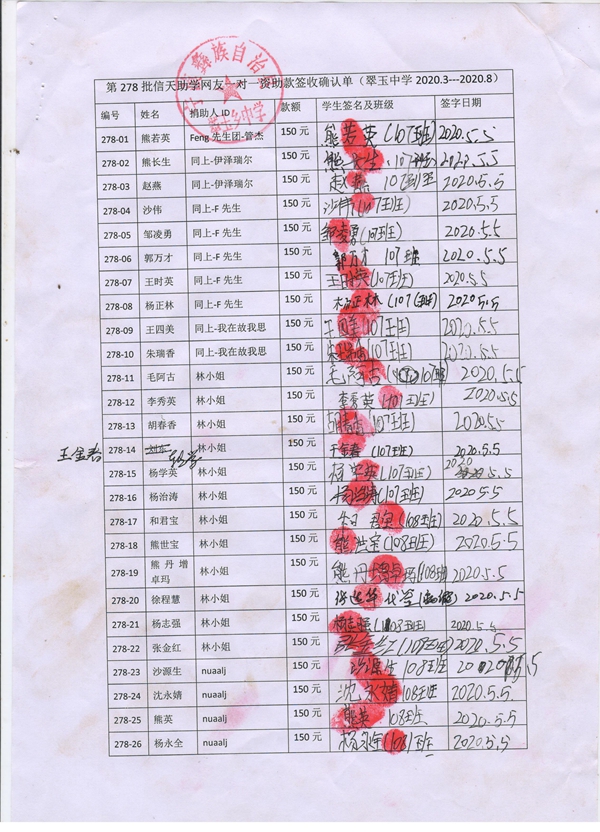 彝族自治
翠玉乡中学
第 278 批信天助学网友一对一资助款签收确认单（翠玉中学 2020.3---2020.8）
编号 姓名 捐助人 ID 款额 学生签名及班级 签字日期
278-01 熊若英 Feng 先生团-管杰 150 元 熊若英（107班） 2020.5.5
278-02 熊长生 同上-伊泽瑞尔 150 元 熊长生 107班 2020.5.5
278-03 赵燕 同上-伊泽瑞尔 150 元 赵燕 107班 2020.5.5
278-04 沙伟 同上-F 先生 150 元 沙伟（107班） 2020.5.5
278-05 邹凌勇 同上-F 先生 150 元 邹凌勇（107班） 2020.5.5
278-06 郭万才 同上-F 先生 150 元 郭万才 107班 2020.5.5
278-07 王时英 同上-F 先生 150 元 王时英（107班） 2020.5.5
278-08 杨正林 同上-F 先生 150 元 杨正林（107班） 2020.5.5
278-09 王四美 同上-我在故我思 150 元 王四美（107班） 2020.5.5
278-10 朱瑞香 同上-我在故我思 150 元 朱瑞香（107班） 2020.5.5
278-11 毛阿古 林小姐 150 元 毛阿古 107班 2020.5.5
278-12 李秀英 林小姐 150 元 李秀英（107班） 2020.5.5
278-13 胡春香 林小姐 150 元 胡春香（107班） 2020.5.5
王金春 278-14 林小姐 150 元 王金春（107班） 2020.5.5
278-15 杨学英 林小姐 150 元 杨学英（107班） 2020.5.5
278-16 杨治涛 林小姐 150 元 杨治涛（107班） 2020.5.5
278-17 和君宝 林小姐 150 元 和君宝（108班） 2020.5.5
278-18 熊世宝 林小姐 150 元 熊世宝（108班） 2020.5.5
278-19 熊丹增卓玛 林小姐 150 元 熊丹增卓玛（108班 2020.5.5
278-20 徐程慧 林小姐 150 元 2020.5.5
278-21 杨志强 林小姐 150 元 杨志强（108班） 2020.5.5
278-22 张金红 林小姐 150 元 张金红（108班） 2020.5.5
278-23 沙源生 nuaalj 150 元 沙源生 108班 2020.5.5
278-24 沈永婧 nuaalj 150 元 沈永婧 108班 2020.5.5
278-25 熊英 nuaalj 150 元 熊英 108班 2020.5.5
278-26 杨永全 nuaalj 150 元 杨永全（108）班 2020.5.5